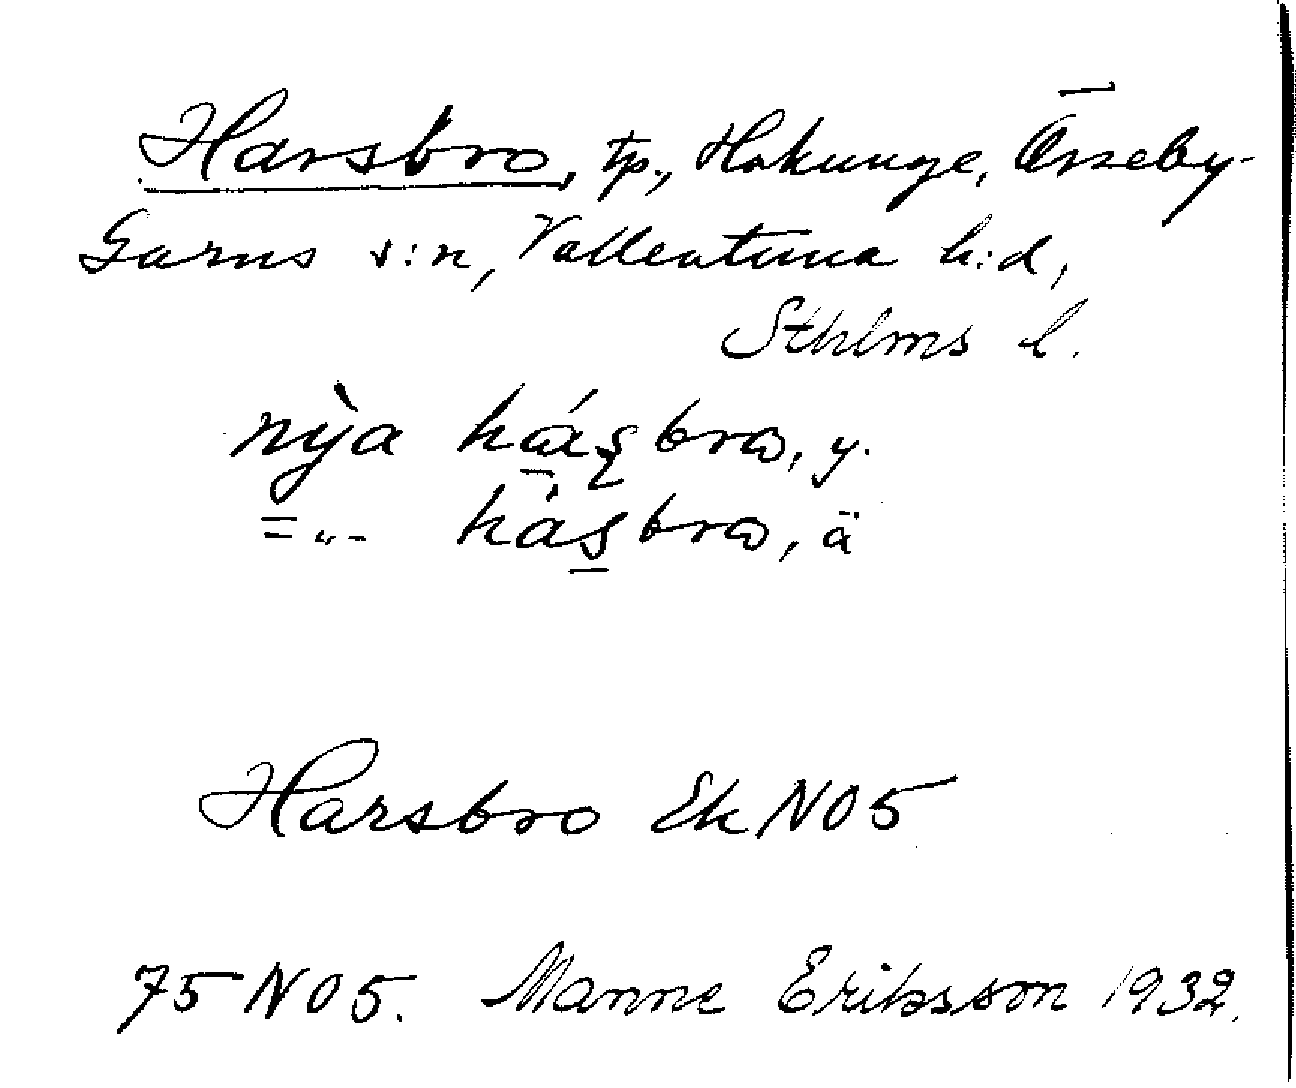 Harsbro, tp., Hakunge, Össeby-
Garns s:n, Vallentuna h:d,
Sthlms l.
nỳa há̱ʂbrɷ, y.
=„- hàʂ̱brɷ, ä
Harsbro Ek NO5
75 NO5. Manne Eriksson 1932.